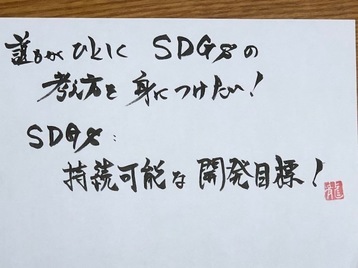 誰もがひとしく SDGsの
考え方を身につけたい!
SDGs:
持続可能な開発目標!